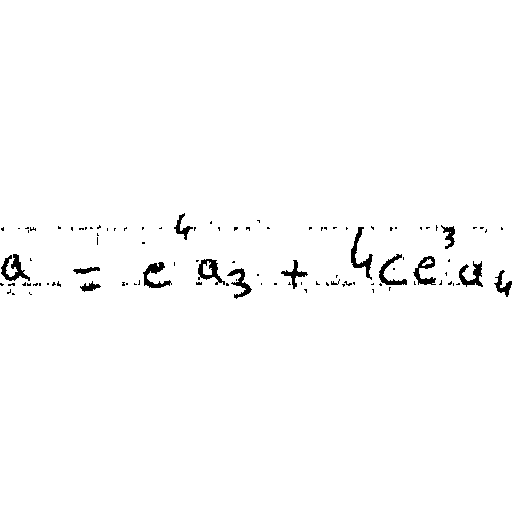 a = e⁴a₃ + 4ce³a₄